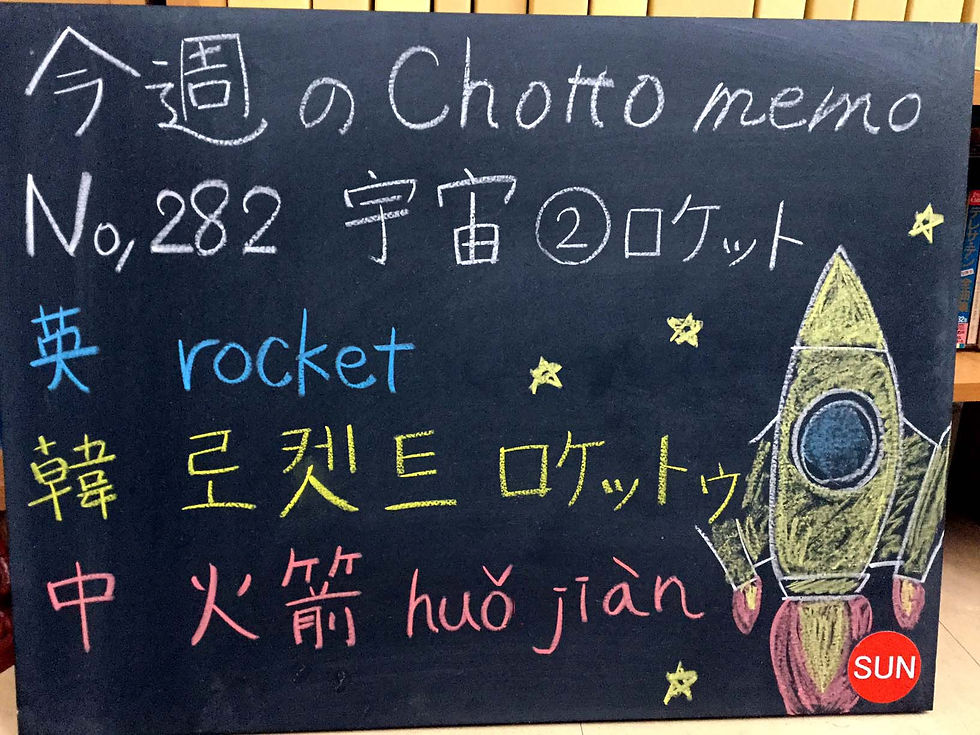 今週のChotto memo
No,282 宇宙②ロケット
英 rocket
韓 로켓트 ロケットゥ
中 火箭 huǒ jiàn
SUN